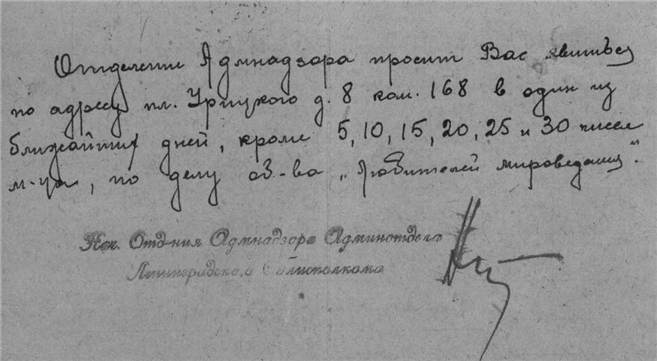 Отделение Адмнадзора просит Вас явиться
по адресу пл. Урицкого д. 8 ком. 168 в один из
ближайших дней, кроме 5, 10, 15, 20, 25 и 30 чисел
м-ца, по делу об-ва „Любителей мироведения".
Нач. Отд-ния Адмнадзора Админотдела
Ленинградского Облисполкома